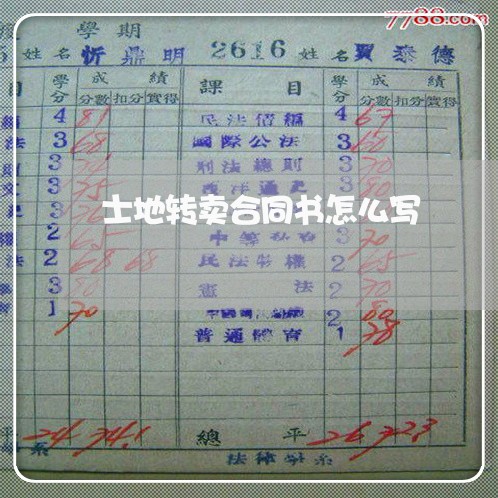 7788.com
學期
姓名 忻鼎明 2616 姓名 賈泰德
目 學分 成績 課目 學分 成績
分數 扣分 實得 分數 扣分 實得
4 81 民法債編 4 67
法 3 68 國際公法 3 60
3 刑法總則 3 70
3 75 3 80
土地转卖合同书怎么写
2 65 3 70
法 2 68 68 民法物權 2 65
3 80 憲法 2 70
1 70 2 80
普通體育 1 78
平 24 74.1 總平 26 72.3
系 法律學系